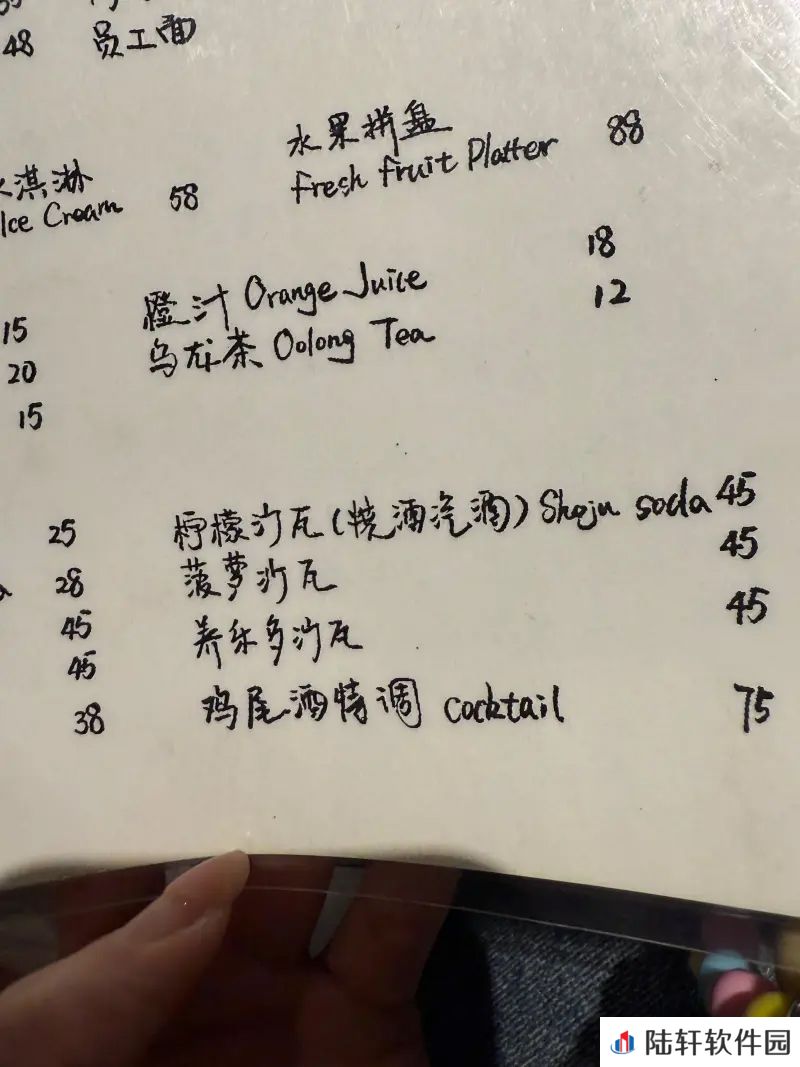 48 员工面
水果拼盘 88
Fresh fruit Platter
淇淋 58
Ice Cream
18
橙汁 Orange Juice 12
15 乌龙茶 Oolong Tea
20
15
25 柠檬沙瓦(烧酒汽酒) Shoju soda 45
28 菠萝沙瓦 45
45 养乐多沙瓦 45
45
38 鸡尾酒特调 cocktail 75
陆轩软件园